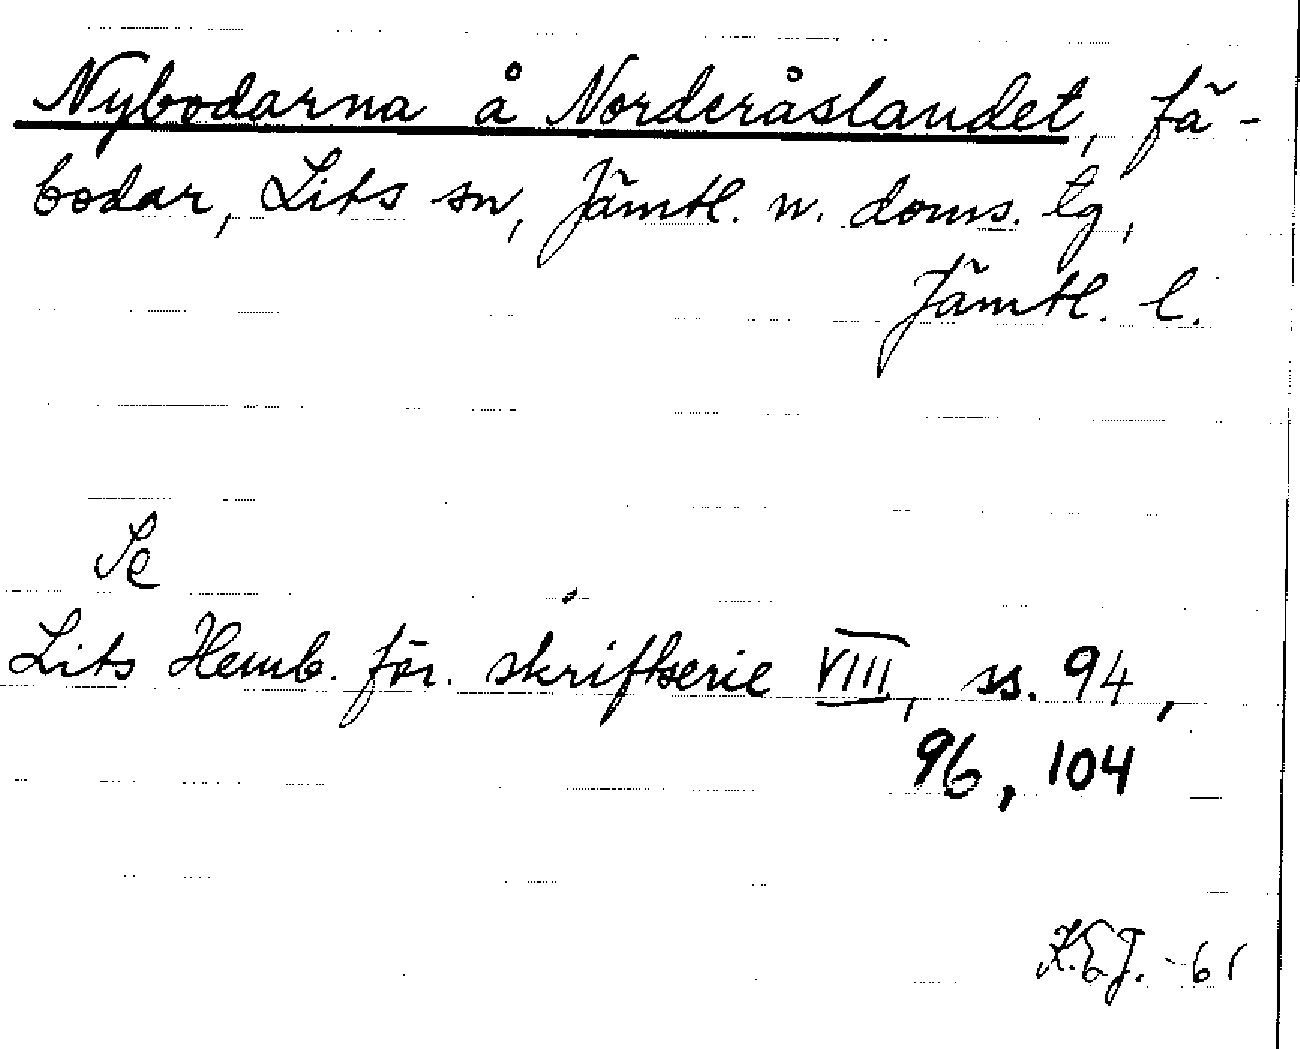 Nybodarna å Norderåslandet, fä-
bodar, Lits sn, Jämtl. n. doms. tg,
Jämtl. l.
Se
Lits Hemb. för. skriftserie VIII, ss. 94,
96, 104
K.E.J. -61